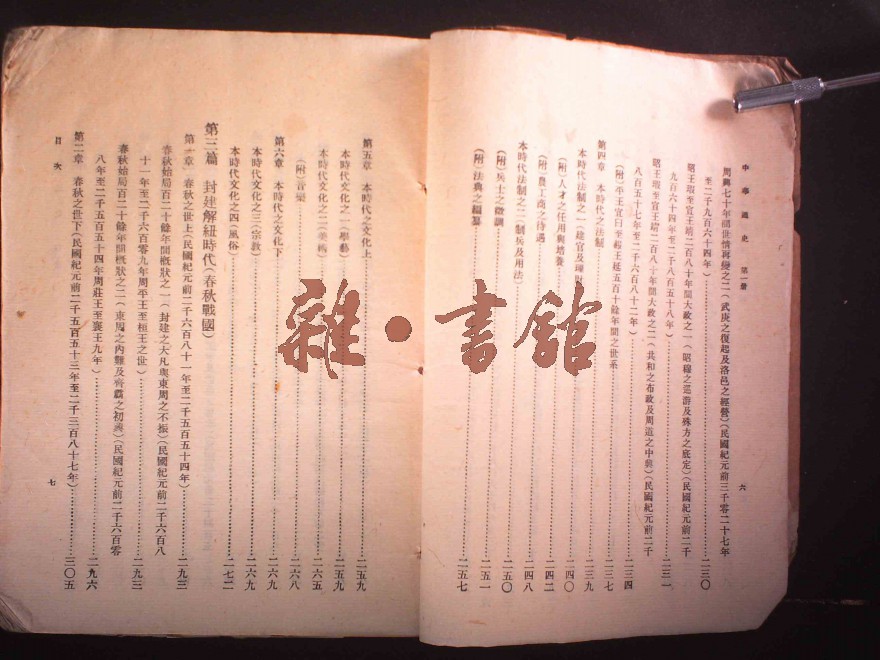 中華通史 第一册
六
周興七十年間世情再變之二(武庚之復起及洛邑之經營)(民國紀元前三千零二十七年
至二千九百六十四年)……二三〇
昭王瑕至宣王靖二百八十年間大政之一(昭穆之巡游及殊方之底定)(民國紀元前二千
九百六十四年至二千八百五十八年)……二三一
昭王瑕至宣王靖二百八十年間大政之二(共和之布政及周道之中興)(民國紀元前二千
八百五十七年至二千六百八十二年)……二三四
(附)平王宜臼至赧王延五百十餘年間之世系……二三七
第四章 本時代之法制……二三九
本時代法制之一(建官及理財)……二三九
(附)人才之任用與培養……二四〇
(附)農工商之待遇……二四二
本時代法制之二(制兵及用法)……二四八
(附)兵士之徵調……二五〇
(附)法典之編纂……二五一
二五七
第五章 本時代之文化上……二五九
本時代文化之一(學藝)……二五九
本時代文化之二(美術)……二六五
(附)音樂……二六八
第六章 本時代之文化下……二六九
本時代文化之三(宗教)……二六九
本時代文化之四(風俗)……二七二
第三篇 封建解紐時代(春秋戰國)
第一章 春秋之世上(民國紀元前二千六百八十一年至二千五百五十四年)……二九三
春秋始局百二十餘年間概狀之一(封建之大凡與東周之不振)(民國紀元前二千六百八
十一年至二千六百零九年周平王至桓王之世)……二九三
春秋始局百二十餘年間概狀之二(東周之內難及齊霸之初興)(民國紀元前二千六百零
八年至二千五百五十四年周莊王至襄王九年)……二九六
第二章 春秋之世下(民國紀元前二千五百五十三年至二千三百八十七年)……三〇五
目次
七
雜·書館